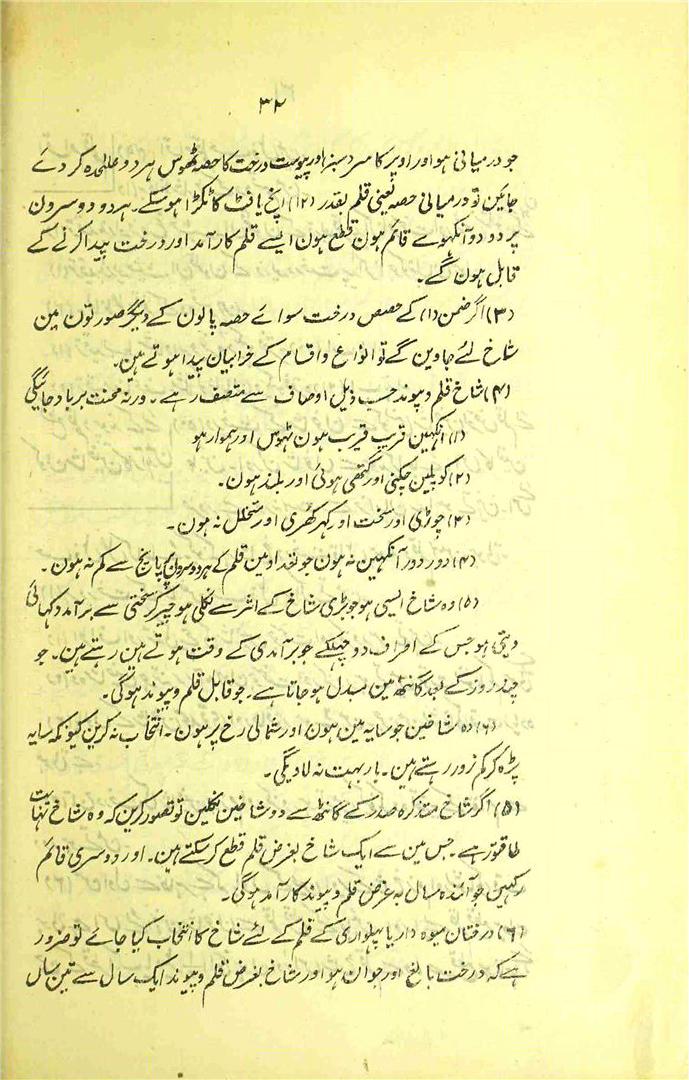 ۳۲
جو درمیانی ہو اور اوپر کا سرد سبز اور پیوست درخت کا حصہ ٹھوس ہر دو علٰحدہ کر دئے
جائین تو درمیانی حصہ یعنی قلم بقدر (۱۲) اِنچ یا فٹ کا ٹکڑا ہو سکے۔ ہر دو دوسرون
پر دو دو آنکھوے قائم ہون قطع ہون ایسے قلم کار آمد اور درخت پیدا کرنے کے
قابل ہون گے۔
(۳) اگر ضمن (۱) کے حصص درخت سوائے حصہ پالون کے دیگر صورتون مین
شاخ لئے جاوین گے تو انواع و اقسام کے خرابیان پیدا ہوتے ہین۔
(۴) شاخ قلم و پیوند حسب ذیل اوصاف سے متصف رہے۔ ورنہ محنت برباد جائیگی
(۱) آنکھین قریب قریب ہون ٹہوس اور ہموار ہو
(۲) کوپلین چکنی اور گتھی ہوئی اور بلند ہون۔
(۳) چوڑی اور سخت اور کہر کھری اور متخلل نہ ہون۔
(۴) دور دور آنکہین نہ ہون جو تعداد مین قلم کے ہر دو سرون پر پانچ سے کم نہ ہون۔
(۵) وہ شاخ ایسی ہو جو بڑی شاخ کے اثر سے نکلی ہو چیر کر سختی سے برآمد دکہائی
دیتی ہو جس کے اطراف دو چہلکے جو برآمدی کے وقت ہوتے ہین رہتے ہین۔ جو
چند روز کے بعد گانٹھ مین مبدل ہو جاتا ہے۔ جو قابل قلم و پیوند ہوگی۔
(۶) وہ شاخین جو سایہ مین ہون اور شمالی رخ پر ہون۔ انتخاب نہ کرین کیونکہ سایہ
پڑہ کر کم زور رہتے ہین۔ بار بہت نہ لادیگی۔
(۵) اگر شاخ متذکرہ صدر کے گانٹھ سے دو شاخین نکلین تو تصور کرین کہ وہ شاخ نہایت
طاقتور ہے۔ جس مین سے ایک شاخ بغرض قلم قطع کر سکتے ہین۔ اور دوسری قائم
رکہین جو آئندہ سال بہ غرض قلم و پیوند کار آمد ہوگی۔
(۶) درختان میوہ دار یا پہلواری کے قلم کے لئے شاخ کا انتخاب کیا جائے تو ضرور
ہے کہ درخت بالغ اور جوان ہو اور شاخ بغرض قلم و پیوند ایک سال سے تین سال